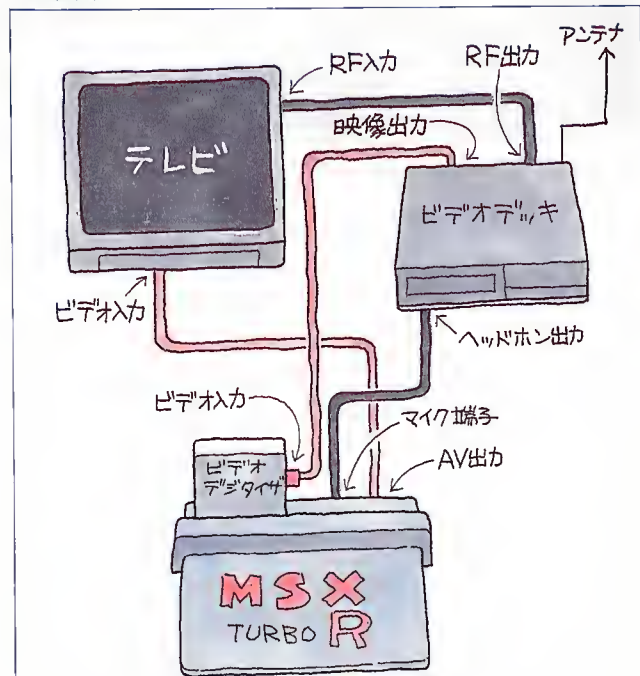 アンテナ
RF入力
RF出力
映像出力
テレビ
ビデオデッキ
ビデオ入力
ヘッドホン出力
ビデオ入力
マイク端子
AV出力
ビデオ
デジタイザ
MSX
TURBO R